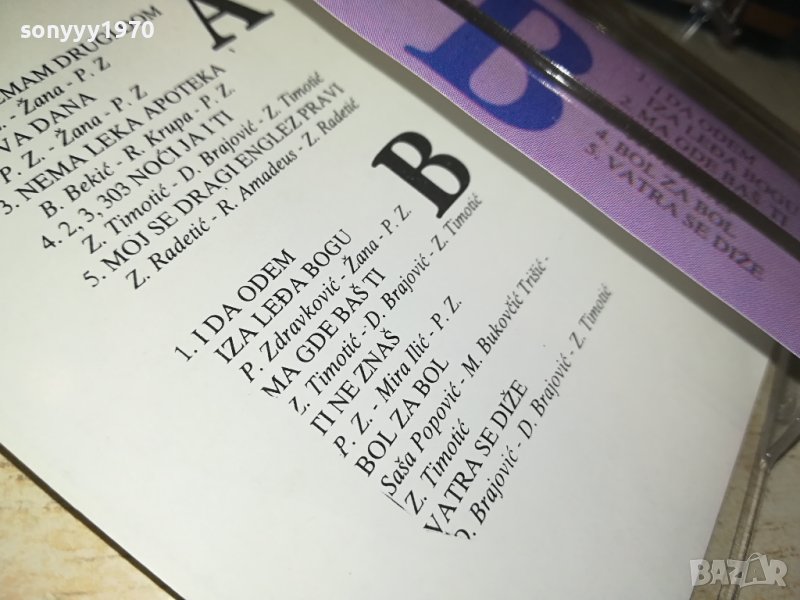 sonyyy1970
A
DRUGI
Žana - P. Z
VA DANA
P. Z. - Žana - P. Z
3. NEMA LEKA APOTEKA
B. Bekić - R. Krupa - P. Z.
4. 2, 3, 303 NOĆI JA I TI
Z. Timotić - D. Brajović - Z. Timotić
5. MOJ SE DRAGI ENGLEZ PRAVI
Z. Radetić - R. Amadeus - Z. Radetić
B
1. I DA ODEM
IZA LEĐA BOGU
P. Zdravković - Žana - P. Z.
MA GDE BAŠ TI
Z. Timotić - D. Brajović - Z. Timotić
TI NE ZNAŠ
P. Z. - Mira Ilić - P. Z.
BOL ZA BOL
Saša Popović - M. Bukovčić Trišić -
Z. Timotić
VATRA SE DIŽE
D. Brajović - D. Brajović - Z. Timotić
B
1. I DA ODEM
IZA LEĐA BOGU
2. MA GDE BAŠ TI
4. BOL ZA BOL
5. VATRA SE DIŽE
BAZAR